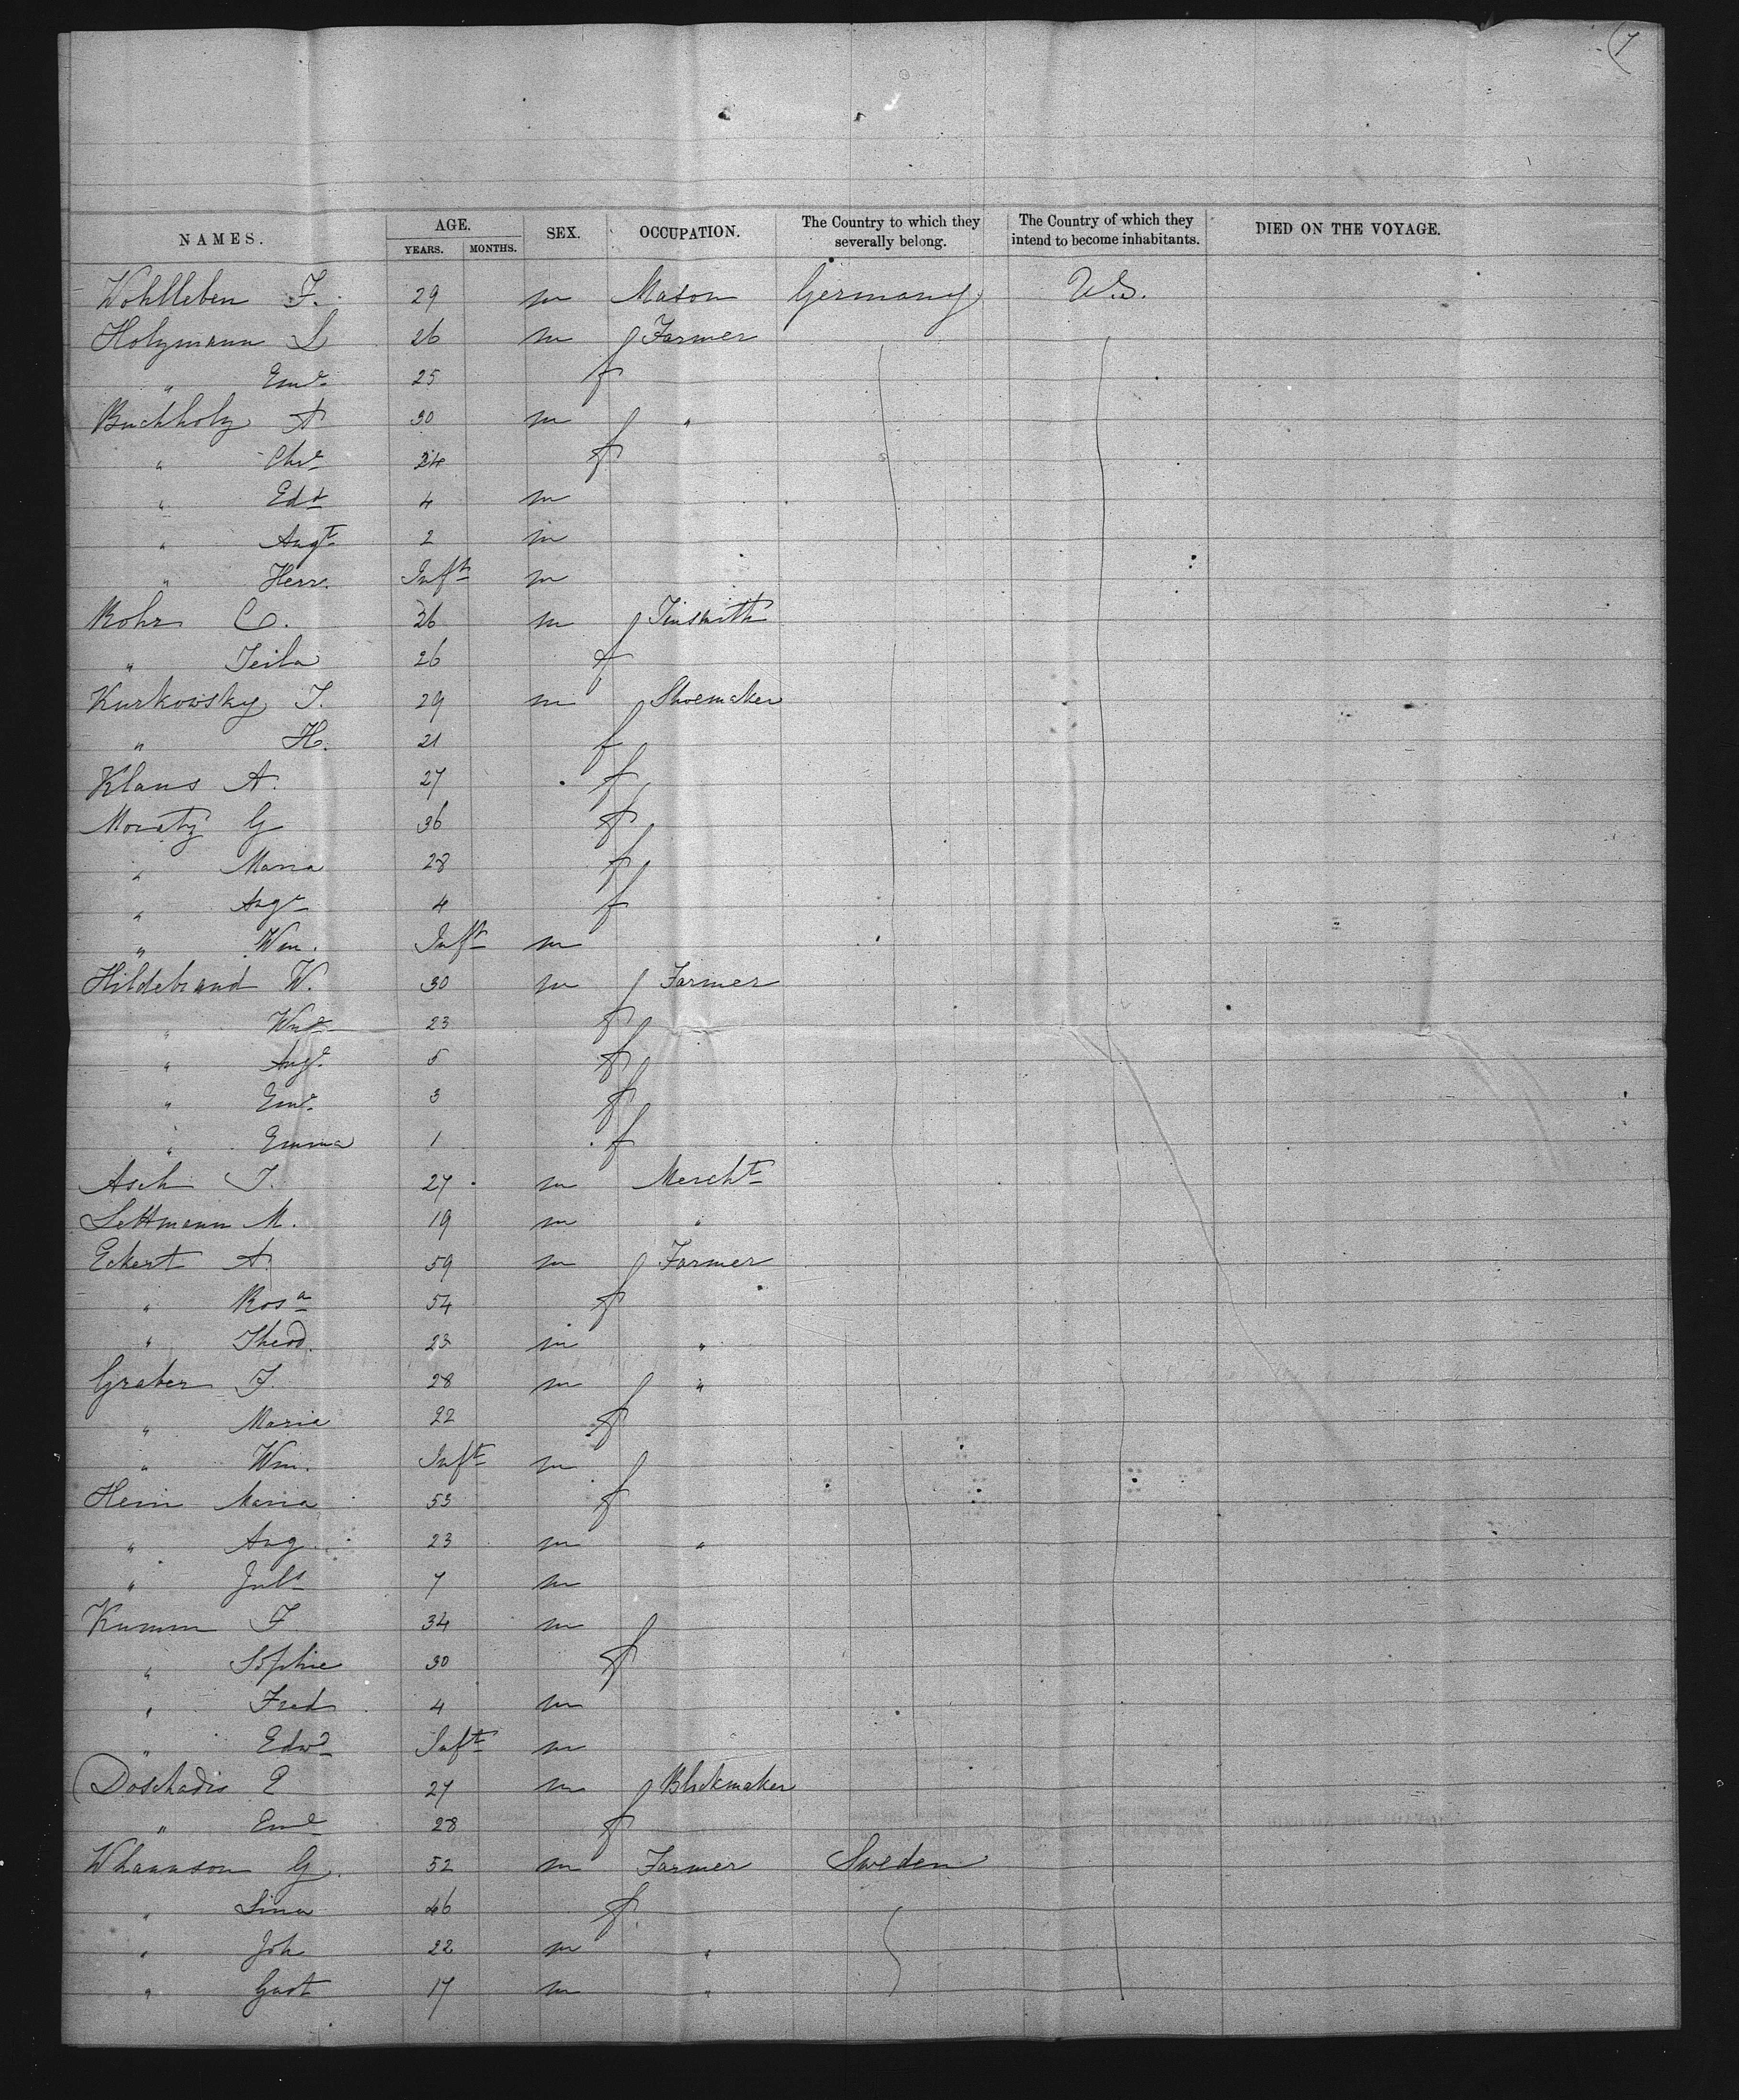 7
NAMES. AGE. YEARS. MONTHS. SEX. OCCUPATION. The Country to which they severally belong. The Country of which they intend to become inhabitants. DIED ON THE VOYAGE.
Wohlleben F. 29 m Mason Germany U.S.
Holzmann L 26 m Farmer
" Eme 25 f
Buchholz A 30 m "
" Che 24 f
" Edd 4 m
" Augt 2 m
" Herr. Inft m
Rohr C. 26 m Tinsmith
" 26 f
Kurkowsky J. 29 m Shoemaker
" H. 21 f
Klaus A. 27 f
Moratz G 36 f
" Maria 28 f
" Auge 4 f
" Wm. Inft m
Hildebrand W. 30 m Farmer
" Wne 23 f
" Auge 5 f
" Eme 3 f
" Emma 1 f
Asch J. 27 m Mercht
Lettmann M. 19 m "
Eckert A. 59 m Farmer
" Rosa 54 f
" Theod. 23 m "
Graber F. 28 m "
" Marie 22 f
" Wm. Inft m
Hein Maria 53 f
" Aug 23 m "
" Juls 7 m
Kumm F 34 m
" Sophie 30 f
" Fred 4 m
" Edwd Inft m
Doschadis E 27 m
" Eme 28 f
Whannson G. 52 m Farmer Sweden
" Lina 46 f
" Joh 22 m "
" Gust 17 m "